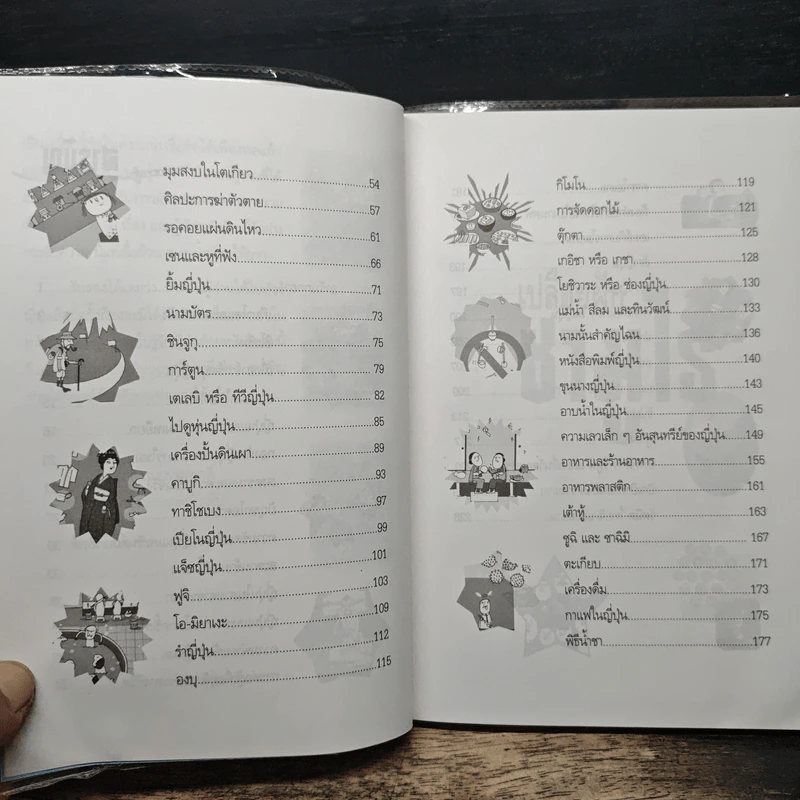 มุมสงบในโตเกียว 54
ศิลปะการฆ่าตัวตาย 57
รอคอยแผ่นดินไหว 61
เซนและหูที่ฟัง 66
ยิ้มญี่ปุ่น 71
นามบัตร 73
ชินจูกุ 75
การ์ตูน 79
เตเลบิ หรือ ทีวีญี่ปุ่น 82
ไปดูหุ่นญี่ปุ่น 85
เครื่องปั้นดินเผา 89
คาบูกิ 93
ทาชิโชเบง 97
เปียโนญี่ปุ่น 99
แจ็ซญี่ปุ่น 101
ฟูจิ 103
โอ-มิยาเงะ 109
รำญี่ปุ่น 112
องบุ 115
กิโมโน 119
การจัดดอกไม้ 121
ตุ๊กตา 125
เกอิชา หรือ เกชา 128
โยชิวาระ หรือ ซ่องญี่ปุ่น 130
แม่น้ำ สีลม และทิวทัศน์ 133
นามนั้นสำคัญไฉน 136
หนังสือพิมพ์ญี่ปุ่น 140
ขุนนางญี่ปุ่น 143
อาบน้ำในญี่ปุ่น 145
ความเลวเล็ก ๆ อันสุนทรีย์ของญี่ปุ่น 149
อาหารและร้านอาหาร 155
อาหารพลาสติก 161
เต้าหู้ 163
ซูฉิ และ ซาฉิมิ 167
ตะเกียบ 171
เครื่องดื่ม 173
กาแฟในญี่ปุ่น 175
พิธีน้ำชา 177